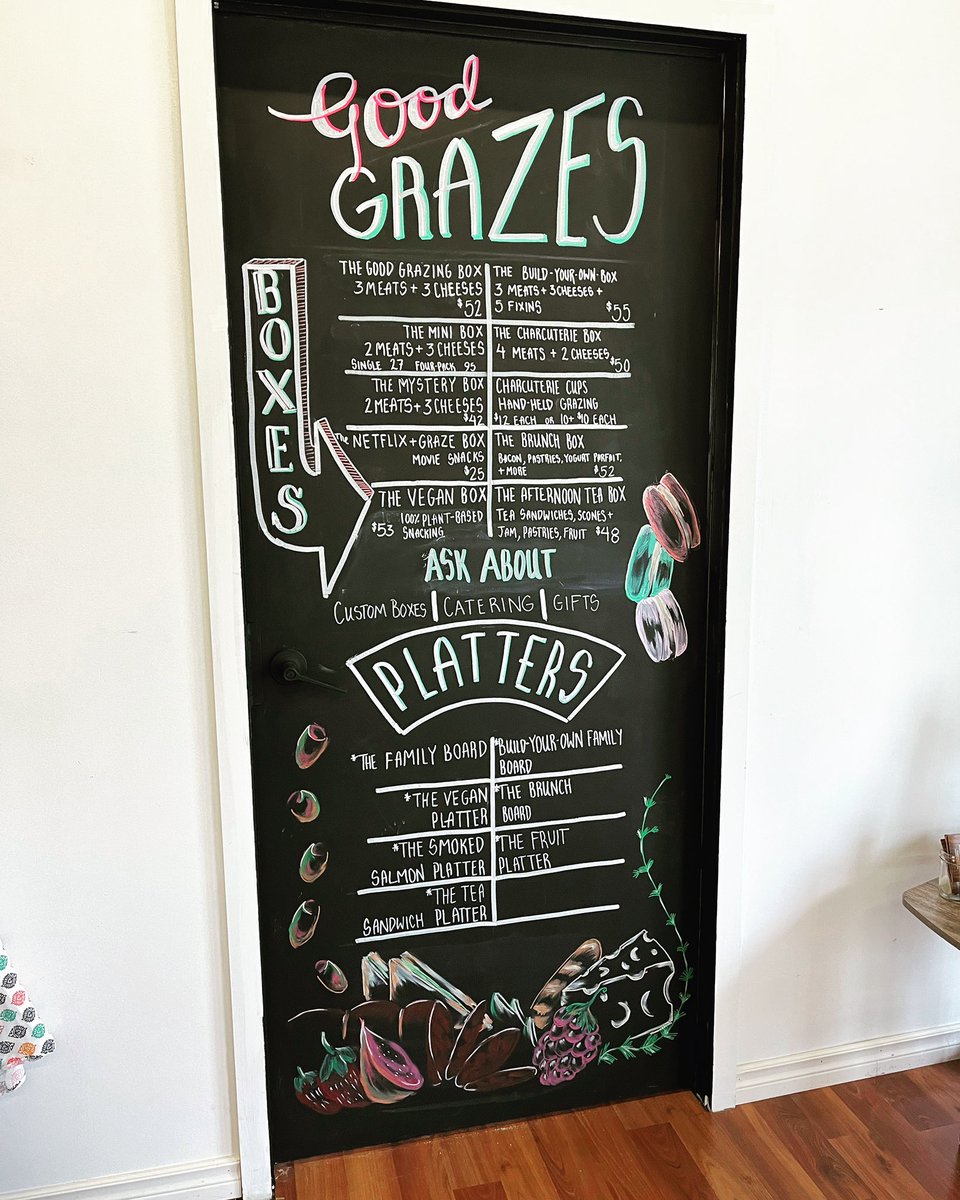 Good
GRAZES
BOXES
THE GOOD GRAZING BOX
3 MEATS + 3 CHEESES
$52
THE BUILD-YOUR-OWN-BOX
3 MEATS + 3 CHEESES +
5 FIXINS $55
THE MINI BOX
2 MEATS + 3 CHEESES
SINGLE 27 FOUR-PACK 95
THE CHARCUTERIE BOX
4 MEATS + 2 CHEESES
$50
THE MYSTERY BOX
2 MEATS + 3 CHEESES
$42
CHARCUTERIE CUPS
HAND-HELD GRAZING
$12 EACH OR 10+ $10 EACH
THE NETFLIX + GRAZE BOX
MOVIE SNACKS
$25
THE BRUNCH BOX
BACON, PASTRIES, YOGURT PARFAIT,
+ MORE $52
THE VEGAN BOX
100% PLANT-BASED
$53 SNACKING
THE AFTERNOON TEA BOX
TEA SANDWICHES, SCONES +
JAM, PASTRIES, FRUIT $48
ASK ABOUT
CUSTOM BOXES | CATERING | GIFTS
PLATTERS
*THE FAMILY BOARD
*BUILD-YOUR-OWN FAMILY
BOARD
*THE VEGAN
PLATTER
*THE BRUNCH
BOARD
*THE SMOKED
SALMON PLATTER
*THE FRUIT
PLATTER
*THE TEA
SANDWICH PLATTER